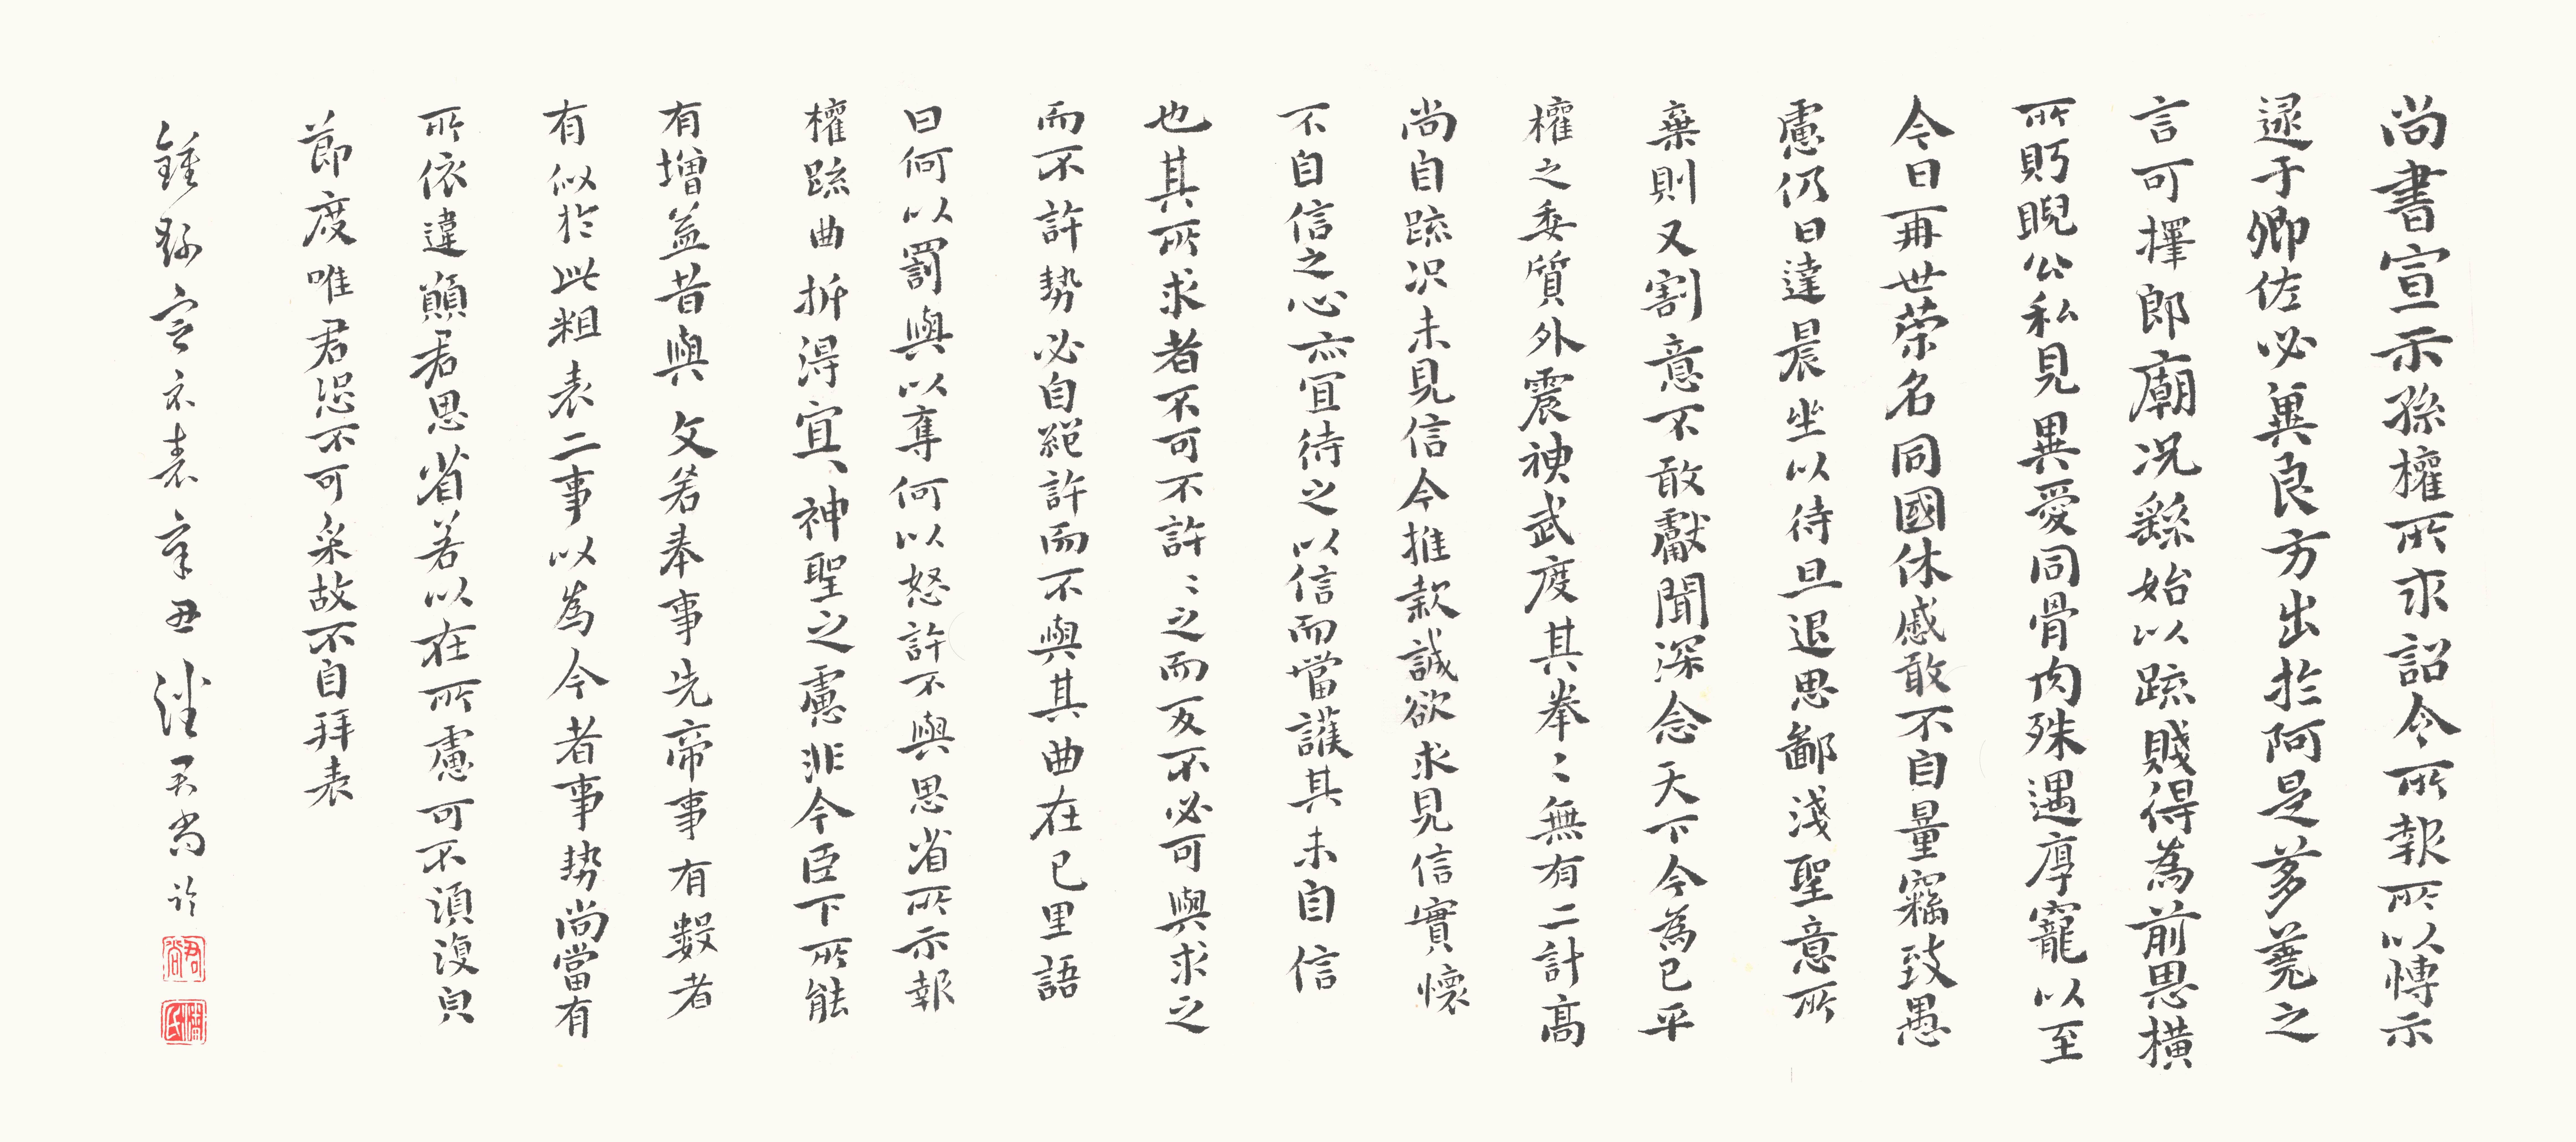 尚書宣示孫權所求詔令所報所以博示
逮于卿佐必冀良方出於阿是芻蕘之
言可擇郎廟況繇始以疏賤得為前恩橫
所盱睨公私見異愛同骨肉殊遇厚寵以至
今日再世榮名同國休慼敢不自量竊致愚
慮仍日達晨坐以待旦退思鄙淺聖意所
棄則又割意不敢獻聞深念天下今為已平
權之委質外震神武度其拳〻無有二計高
尚自疏況未見信今推款誠欲求見信實懷
不自信之心亦宜待之以信而當護其未自信
也其所求者不可不許〻之而反不必可與求之
而不許勢必自絕許而不與其曲在己里語
曰何以罰與以奪何以怒許不與思省所示報
權疏曲折得宜宜神聖之慮非今臣下所能
有增益昔與文若奉事先帝事有數者
有似於此粗表二事以為今者事勢尚當有
所依違願君思省若以在所慮可不須復皃
節度唯君恐不可采故不自拜表
鍾繇宣示表辛丑 君尚
君尚
潘氏